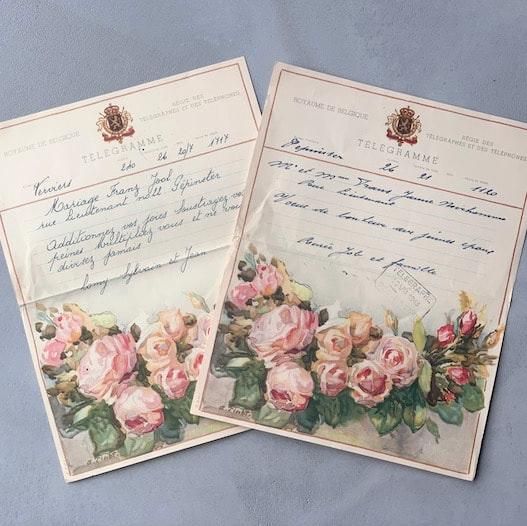 ROYAUME DE BELGIQUE
RÉGIE DES
TÉLÉGRAPHES ET DES TÉLÉPHONES
TÉLÉGRAMME
Verviers 210 26 20/7 1717
Mariage Franz Jool
rue Lieutenant no 11 Pepinster
Additionnez vos joies soustrayez vos
peines multipliez vous et ne vous
divisez jamais
Lomy Sylvain et Jean
ROYAUME DE BELGIQUE
RÉGIE DES
TÉLÉGRAPHES ET DES TÉLÉPHONES
TÉLÉGRAMME
Pépinster 26 21 1120
Mr et Mme Frans
Rue Lieutenant
Vœux de bonheur aux jeunes époux
et famille